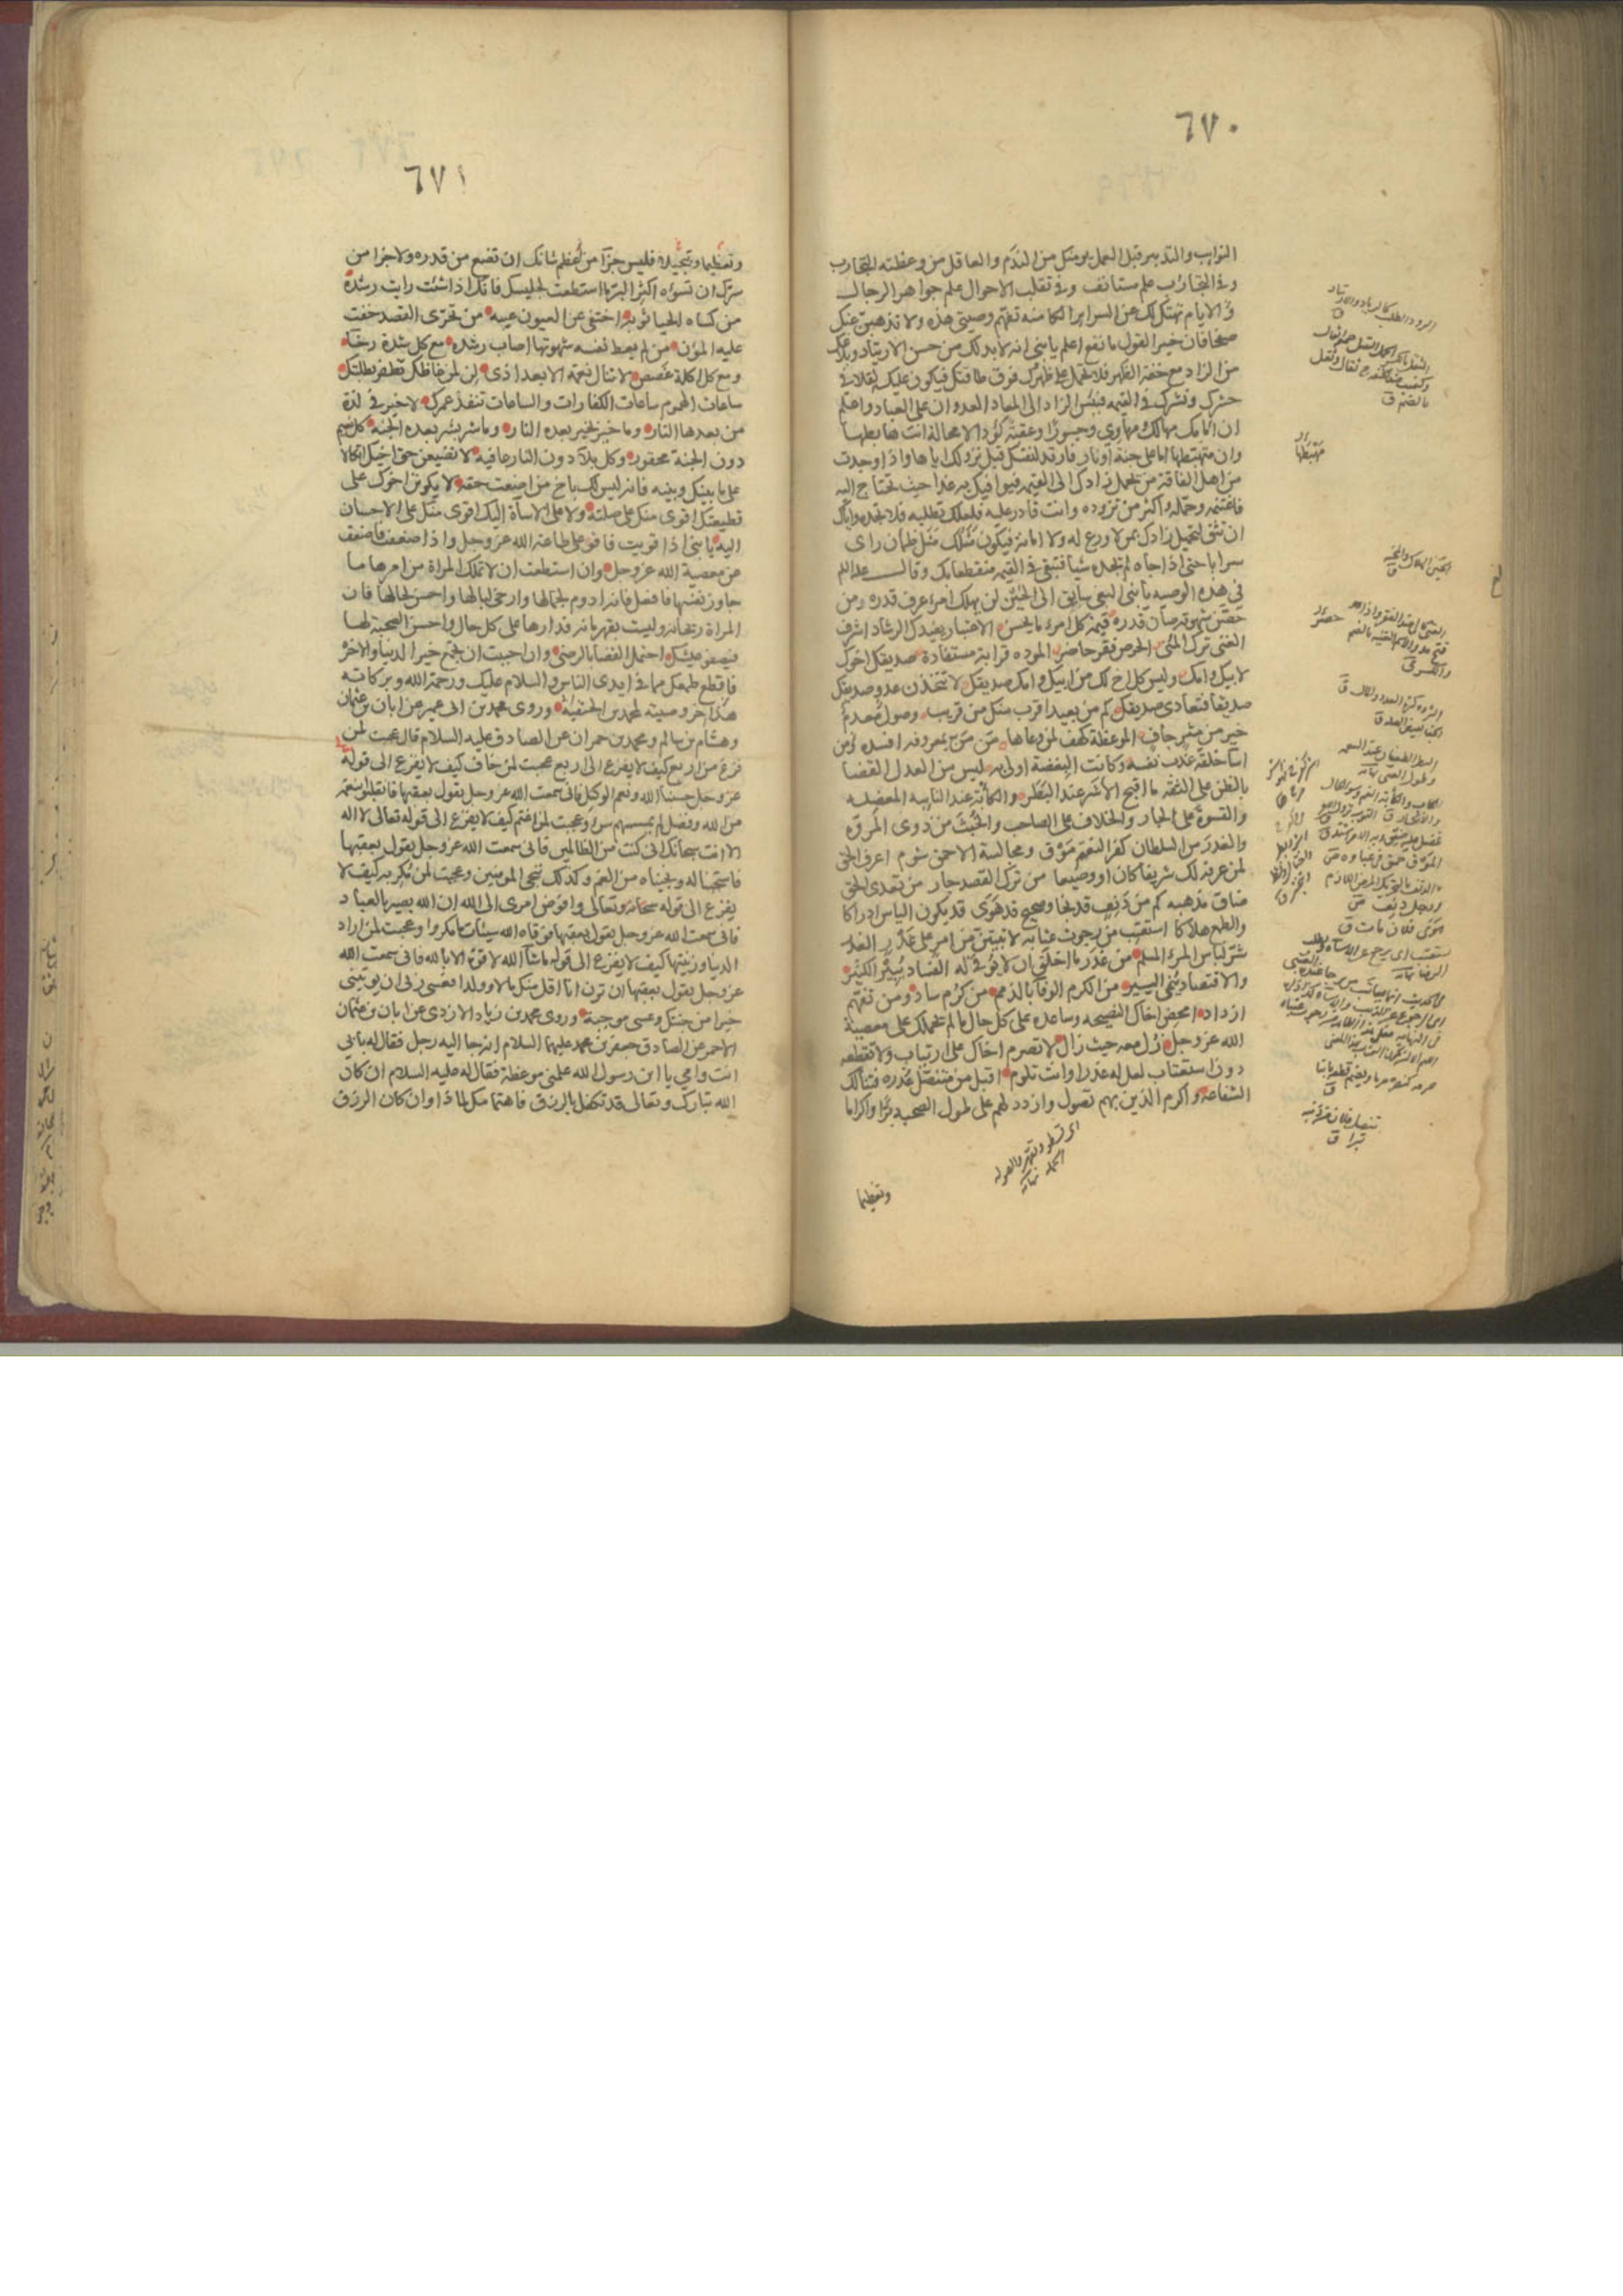 ٦٧٠
النوايب والتدبير قبل العمل يومنك من الندم والعاقل من وعظته التجارب
وفي التجارب علم مستانف وفي تقلب الاحوال علم جواهر الرجال
والايام تهتك لك عن السراير الكامنه تفهم وصيتي هذه ولا تذهبن عنك
صفحا فان خير القول ما نفع اعلم يا بني انه لا بد لك من حسن الارتياد وبلاغك
من الزاد مع خفة الظهر فلا تحمل على ظهرك فوق طاقتك فيكون عليك ثقلا في
حشرك ونشرك في القيمه فبئس الزاد الى المعاد العدوان على العباد واعلم
ان امامك مهالك ومهاوي وجسورا وعقبة كؤدا لا محالة انت هابطها
وان مهبطها اما على جنة او نار فارتد لنفسك قبل نزولك اياها واذا وجدت
من اهل الفاقة من يحمل زادك الى القيمه فيوافيك به غدا حيث تحتاج اليه
فاغتنمه وحمله واكثر من تزوده وانت قادر عليه فلعلك تطلبه فلا تجده واياك
ان تثق لتحميل زادك بمن لا ورع له ولا امانة فيكون مثلك مثل ظمان راى
سرابا حتى اذا جاءه لم يجده شيئا فتبقى في القيمه منقطعا بك وقال عليه السلام
في هذه الوصيه يا بني البغي سايق الى الحين لن يهلك امرؤ عرف قدره ومن
حصن شهوته صان قدره قيمة كل امرئ ما يحسن الاعتبار يفيدك الرشاد اشرف
الغنى ترك المنى الحرص فقر حاضر المودة قرابة مستفادة صديقك اخوك
لابيك وامك وليس كل اخ لك من ابيك وامك صديقك لا تتخذن عدو صديقك
صديقا فتعادى صديقك كم من بعيد اقرب منك من قريب وصول معدم
خير من مثر جاف الموعظة كهف لمن وعاها من من بمعروفه افسده ومن
اساء خلقه عذب نفسه وكانت البغضة اولى به ليس من العدل القضا
بالظن على الثقه ما اقبح الاشر عند البطر والكآبة عند النايبه المعضله
والقسوة على الجار والخلاف على الصاحب والخبث من ذوى المروة
والغدر من السلطان كفر النعم موق ومجالسة الاحمق شوم اعرف الحق
لمن عرفه لك شريفا كان او وضيعا من ترك القصد جار من تعدى الحق
ضاق مذهبه كم من دنف قد نجا وصحيح قد هوى قد يكون الياس ادراكا
والطمع هلاكا استعتب من رجوت عتابه لا تبيتن من امر على غدر الغدر
شر لباس المرء المسلم من غدر ما اخلق ان لا يوفى له الفساد يبير الكثير
والاقتصاد ينمي اليسير من الكرم الوفا بالذمم من كرم ساد ومن تفهم
ازداد امحض اخاك النصيحه وساعده على كل حال ما لم يحملك على معصية
الله عز وجل زل معه حيث زال لا تصرم اخاك على ارتياب ولا تقطعه
دون استعتاب لعل له عذرا وانت تلوم اقبل من متنصل عذره فتنالك
الشفاعة واكرم الذين بهم تصول وازدد لهم على طول الصحبه برا واكراما
وتعظيما
٦٧١
وتعظيما وتبجيلا فليس جزآ من عظم شانك ان تضع من قدره ولا جزا من
سرك ان تسوءه اكثر البر ما استطعت لجليسك فانك اذا شئت رايت رشده
من كساه الحيا ثوبه اختفى عن العيون عيبه من تحرى القصد خفت
عليه المؤن من لم يعط نفسه شهوتها اصاب رشده مع كل شدة رخا
ومع كل اكلة غصص لا تنال نعمة الا بعد اذى لن لمن غاظك تظفر بطلبتك
ساعات الهموم ساعات الكفارات والساعات تنفذ عمرك لا خير في لذة
من بعدها النار وما خير بخير بعده النار وما شر بشر بعده الجنة كل نعيم
دون الجنة محقور وكل بلآء دون النار عافية لا تضيعن حق اخيك اتكالا
على ما بينك وبينه فانه ليس لك باخ من اضعت حقه لا يكونن اخوك على
قطيعتك اقوى منك على صلته ولا على الاساة اليك اقوى منك على الاحسان
اليه يا بني اذا قويت فاقو على طاعة الله عز وجل واذا ضعفت فاضعف
عن معصية الله عز وجل وان استطعت ان لا تملك المراة من امرها ما
جاوز نفسها فافعل فانه ادوم لجمالها وارخى لبالها واحسن لحالها فان
المراة ريحانة وليست بقهرمانه فدارها على كل حال واحسن الصحبة لها
فيصفو عيشك احتمل القضا بالرضى وان احببت ان تجمع خير الدنيا والاخرة
فاقطع طمعك مما في ايدى الناس والسلام عليك ورحمة الله وبركاته
هذا اخر وصيته لمحمد بن الحنفية وروى محمد بن ابى عمير عن ابان بن عثمان
وهشام بن سالم ومحمد بن حمران عن الصادق عليه السلام قال عجبت لمن
فزع من اربع كيف لا يفزع الى اربع عجبت لمن خاف كيف لا يفزع الى قوله
عز وجل حسبنا الله ونعم الوكيل فانى سمعت الله عز وجل يقول بعقبها فانقلبوا بنعمة
من الله وفضل لم يمسسهم سوء وعجبت لمن اغتم كيف لا يفزع الى قوله تعالى لا اله
الا انت سبحانك انى كنت من الظالمين فانى سمعت الله عز وجل يقول بعقبها
فاستجبنا له ونجيناه من الغم وكذلك ننجي المومنين وعجبت لمن مكر به كيف لا
يفزع الى قوله سبحانه وتعالى وافوض امرى الى الله ان الله بصير بالعباد
فانى سمعت الله عز وجل يقول بعقبها فوقاه الله سيئات ما مكروا وعجبت لمن اراد
الدنيا وزينتها كيف لا يفزع الى قوله ماشآء الله لا قوة الا بالله فانى سمعت الله
عز وجل يقول بعقبها ان ترن انا اقل منك مالا وولدا فعسى ربى ان يوتينى
خيرا من جنتك وعسى موجبة وروى محمد بن زياد الازدى عن ابان بن عثمان
الاحمر عن الصادق جعفر بن محمد عليهما السلام انه جا اليه رجل فقال له بابى
انت وامي يا ابن رسول الله علمنى موعظة فقال له عليه السلام ان كان
الله تبارك وتعالى قد تكفل بالرزق فاهتمامك لماذا وان كان الرزق